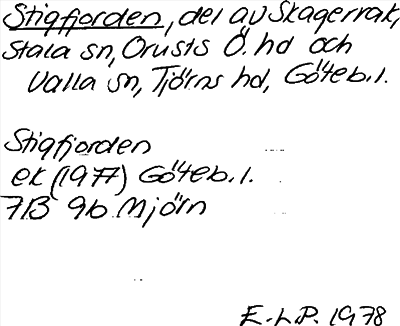 Stigfjorden, del av Skagerrak,
Stala sn, Orusts Ö. hd och
Valla sn, Tjörns hd, Göteb. l.
Stigfjorden
ek (1977) Göteb. l.
7B 9b Mjörn
E.-L.P. 1978